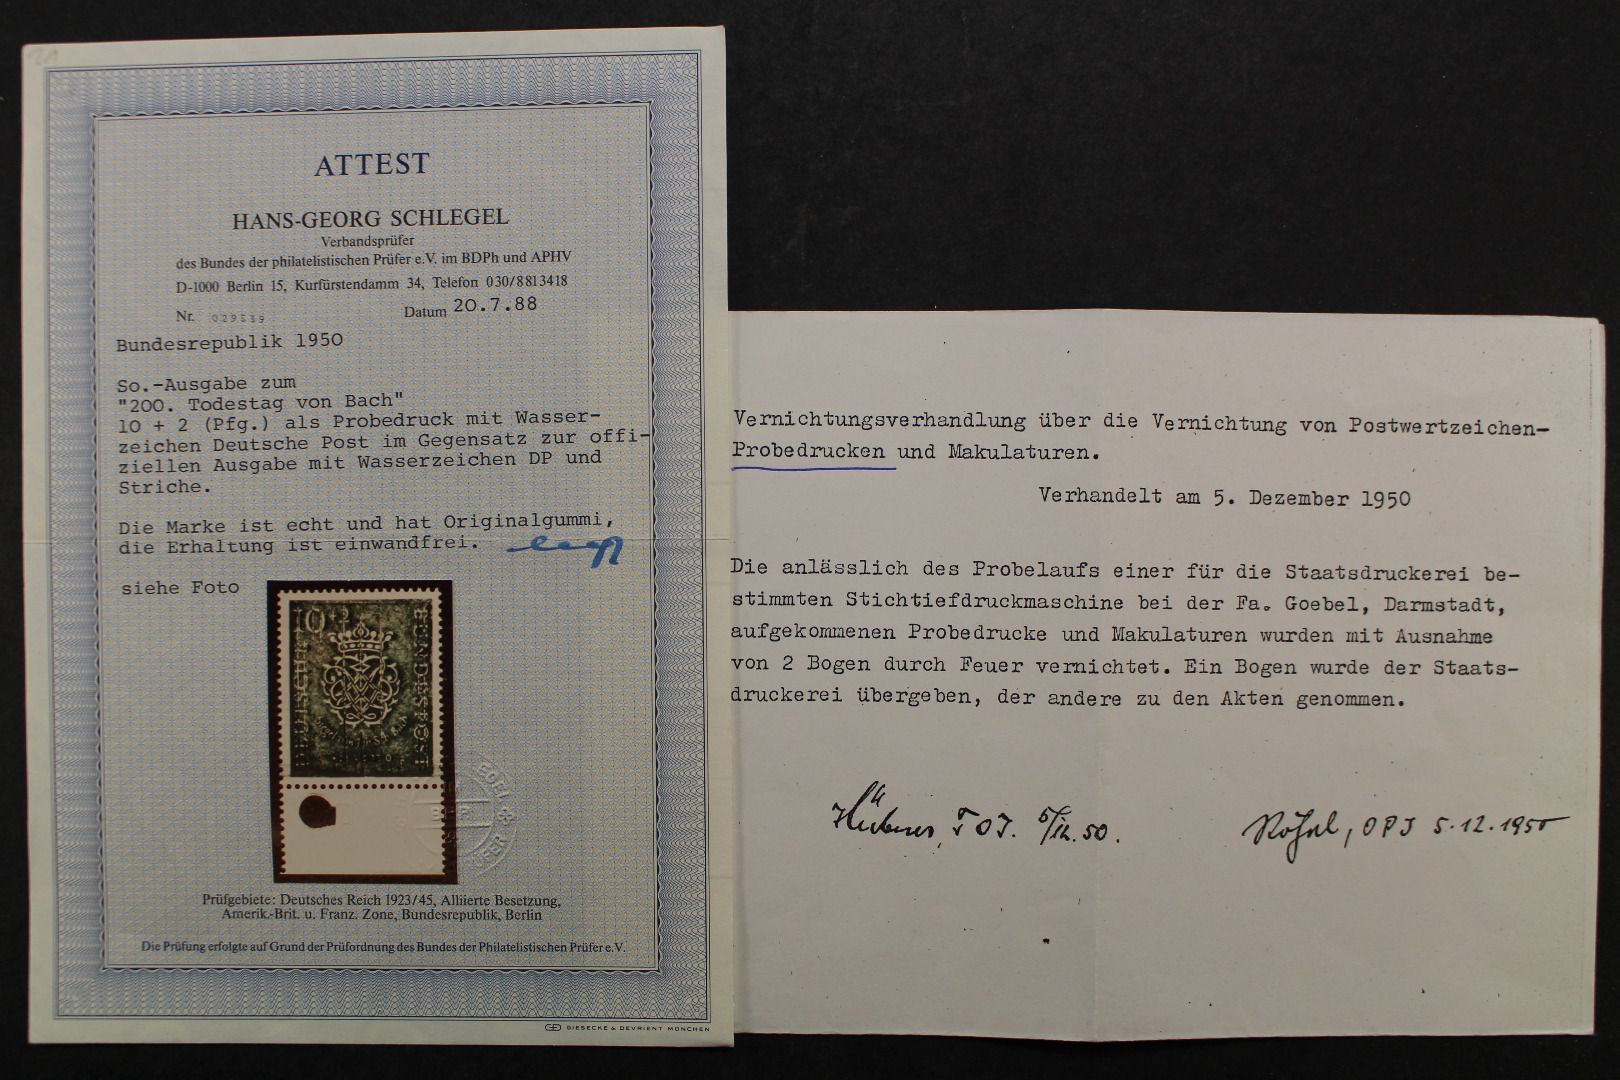 ATTEST
HANS-GEORG SCHLEGEL
Verbandsprüfer
des Bundes der philatelistischen Prüfer e.V. im BDPh und APHV
D-1000 Berlin 15, Kurfürstendamm 34, Telefon 030/8813418
Nr. Datum 20.7.88
Bundesrepublik 1950
So.-Ausgabe zum
"200. Todestag von Bach"
10 + 2 (Pfg.) als Probedruck mit Wasser-
zeichen Deutsche Post im Gegensatz zur offi-
ziellen Ausgabe mit Wasserzeichen DP und
Striche.
Die Marke ist echt und hat Originalgummi,
die Erhaltung ist einwandfrei.
siehe Foto
10+2
DEUTSCHE
BUNDESPOST
Prüfgebiete: Deutsches Reich 1923/45, Alliierte Besetzung,
Amerik.-Brit. u. Franz. Zone, Bundesrepublik, Berlin
Die Prüfung erfolgte auf Grund der Prüfordnung des Bundes der Philatelistischen Prüfer e.V.
GD GIESECKE & DEVRIENT MÜNCHEN
Vernichtungsverhandlung über die Vernichtung von Postwertzeichen-
Probedrucken und Makulaturen.
Verhandelt am 5. Dezember 1950
Die anlässlich des Probelaufs einer für die Staatsdruckerei be-
stimmten Stichtiefdruckmaschine bei der Fa. Goebel, Darmstadt,
aufgekommenen Probedrucke und Makulaturen wurden mit Ausnahme
von 2 Bogen durch Feuer vernichtet. Ein Bogen wurde der Staats-
druckerei übergeben, der andere zu den Akten genommen.
5/12.50.
OPJ 5.12.1950